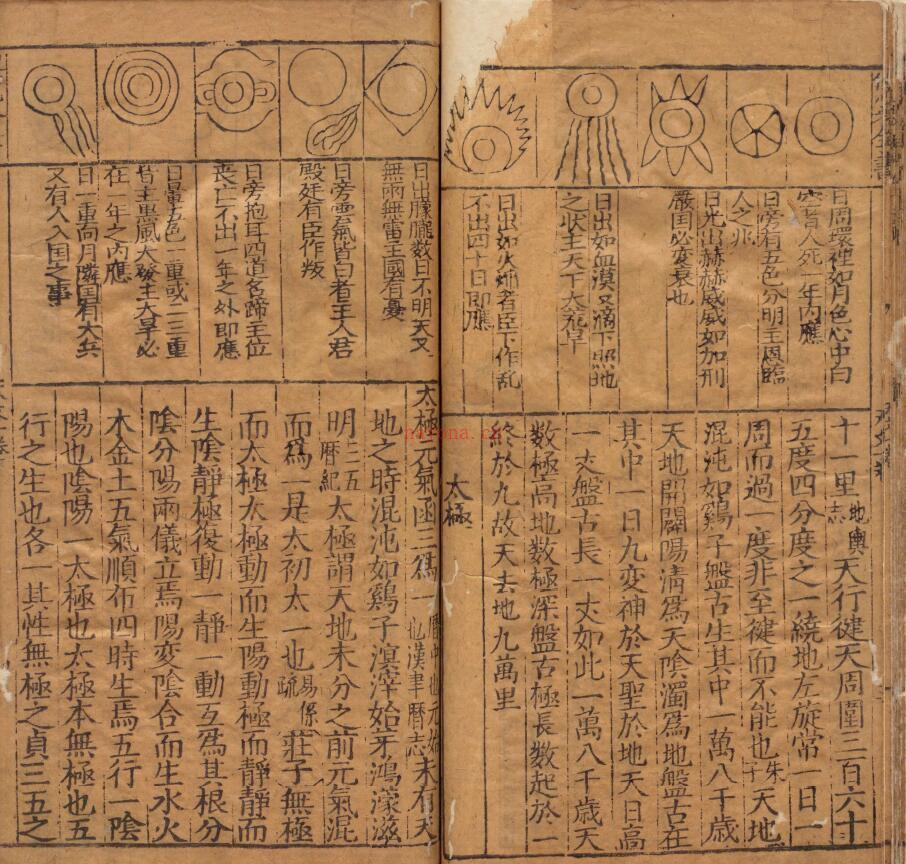 日周環裡如月色心中白
空者人死一年内應
日旁有五色分明主恩臨
人之兆
日光出赫赫威威如加刑
嚴国必变衰也
日出如血漠又滴下照地
之状主天下大荒旱
日出如火焰者臣下作乱
不出四十日即應
十一里地輿志天行健天周圍三百六十
五度四分度之一繞地左旋常一日一
周而過一度非至健而不能也朱子天地
混沌如鷄子盤古生其中一萬八千歲
天地開闢陽清爲天陰濁爲地盤古在
其中一日九変神於天聖於地天日高
一丈盤古長一丈如此一萬八千歲天
数極高地数極深盤古極長数起於一
終於九故天去地九萬里
太極
日出朦朧数日不明天又
無雨無雷主國有憂
日旁雲氣皆白者主人君
殿廷有臣作叛
日旁抱耳四道名蹄主位
喪亡不出一年之外即應
日暈五色一重或二三重
皆主惠風大發主大旱必
在一年之内應
日一重向月隣国有大兵
又有入人国之事
太極元氣函三爲一也漢書暦志未有天
地之時混沌如鷄子溟涬始芽鴻濛滋
明三五暦紀太極謂天地未分之前元氣混
而爲一是太初太一也易係疏莊子無極
而太極太極動而生陽動極而靜靜而
生陰靜極復動一靜一動互爲其根分
陰分陽兩儀立焉陽变陰合而生水火
木金土五氣順布四時生焉五行一陰
陽也陰陽一太極也太極本無極也五
行之生也各一其性無極之貞三五之